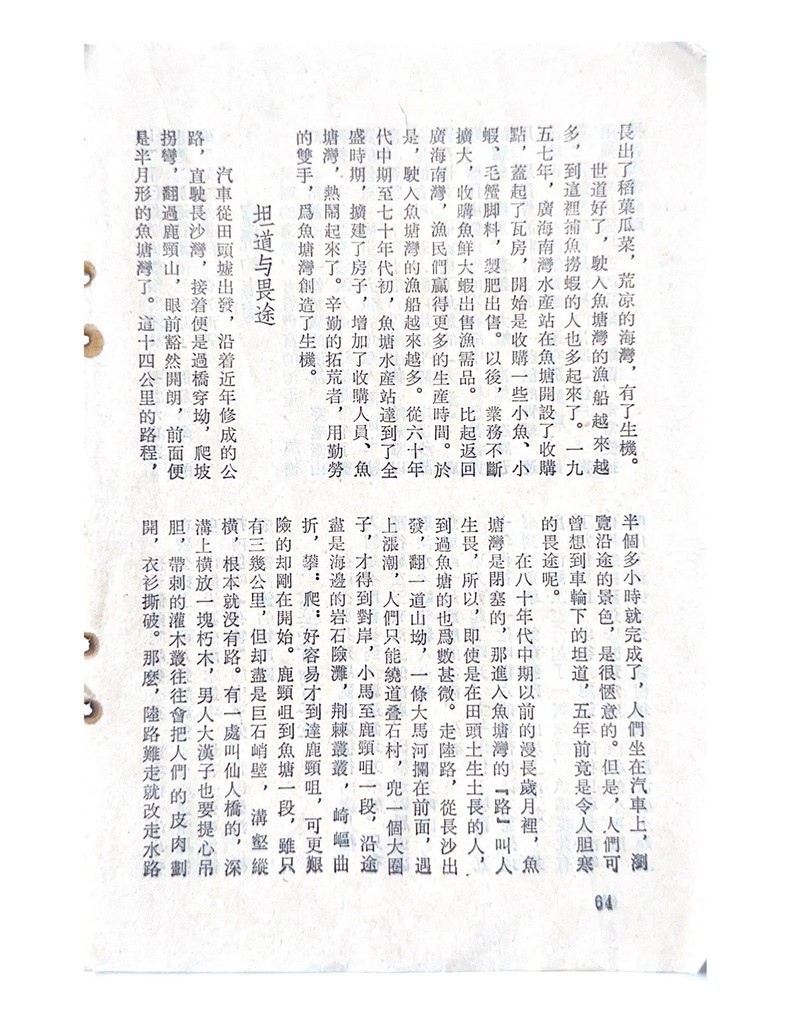 長出了稻菜瓜菜，荒凉的海灣，有了生機。
世道好了，駛入魚塘灣的漁船越來越
多，到這裡捕魚撈蝦的人也多起來了。一九
五七年，廣海南灣水産站在魚塘開設了收購
點，蓋起了瓦房，開始是收購一些小魚、小
蝦、毛蟹脚料，製肥出售。以後，業務不斷
擴大，收購魚鮮大蝦出售漁需品。比起返回
廣海南灣，漁民們贏得更多的生産時間。於
是，駛入魚塘灣的漁船越來越多。從六十年
代中期至七十年代初，魚塘水産站達到了全
盛時期，擴建了房子，增加了收購人員、魚
塘灣，熱鬧起來了。辛勤的拓荒者，用勤勞
的雙手，爲魚塘灣創造了生機。
坦道与畏途
汽車從田頭墟出發，沿着近年修成的公
路，直駛長沙灣，接着便是過橋穿坳，爬坡
拐彎，翻過鹿頸山，眼前豁然開朗，前面便
是半月形的魚塘灣了。這十四公里的路程，
半個多小時就完成了，人們坐在汽車上，瀏
覽沿途的景色，是很愜意的。但是，人們可
曾想到車輪下的坦道，五年前竟是令人胆寒
的畏途呢。
在八十年代中期以前的漫長歲月裡，魚
塘灣是閉塞的，那進入魚塘灣的『路』叫人
生畏，所以，即使是在田頭土生土長的人，
到過魚塘的也爲數甚微。走陸路，從長沙出
發，翻一道山坳，一條大馬河攔在前面，遇
上漲潮，人們只能繞道叠石村，兜一個大圈
子，才得到對岸，小馬至鹿頸咀一段，沿途
盡是海邊的岩石險灘，荆棘叢叢，崎嶇曲
折，攀：爬：好容易才到達鹿頸咀，可更艱
險的却剛在開始。鹿頸咀到魚塘一段，雖只
有三幾公里，但却盡是巨石峭壁，溝壑縱
橫，根本就没有路。有一處叫仙人橋的，深
溝上橫放一塊朽木，男人大漢子也要提心吊
胆，帶刺的灌木叢往往會把人們的皮肉劃
開，衣衫撕破。那麽，陸路難走就改走水路
64